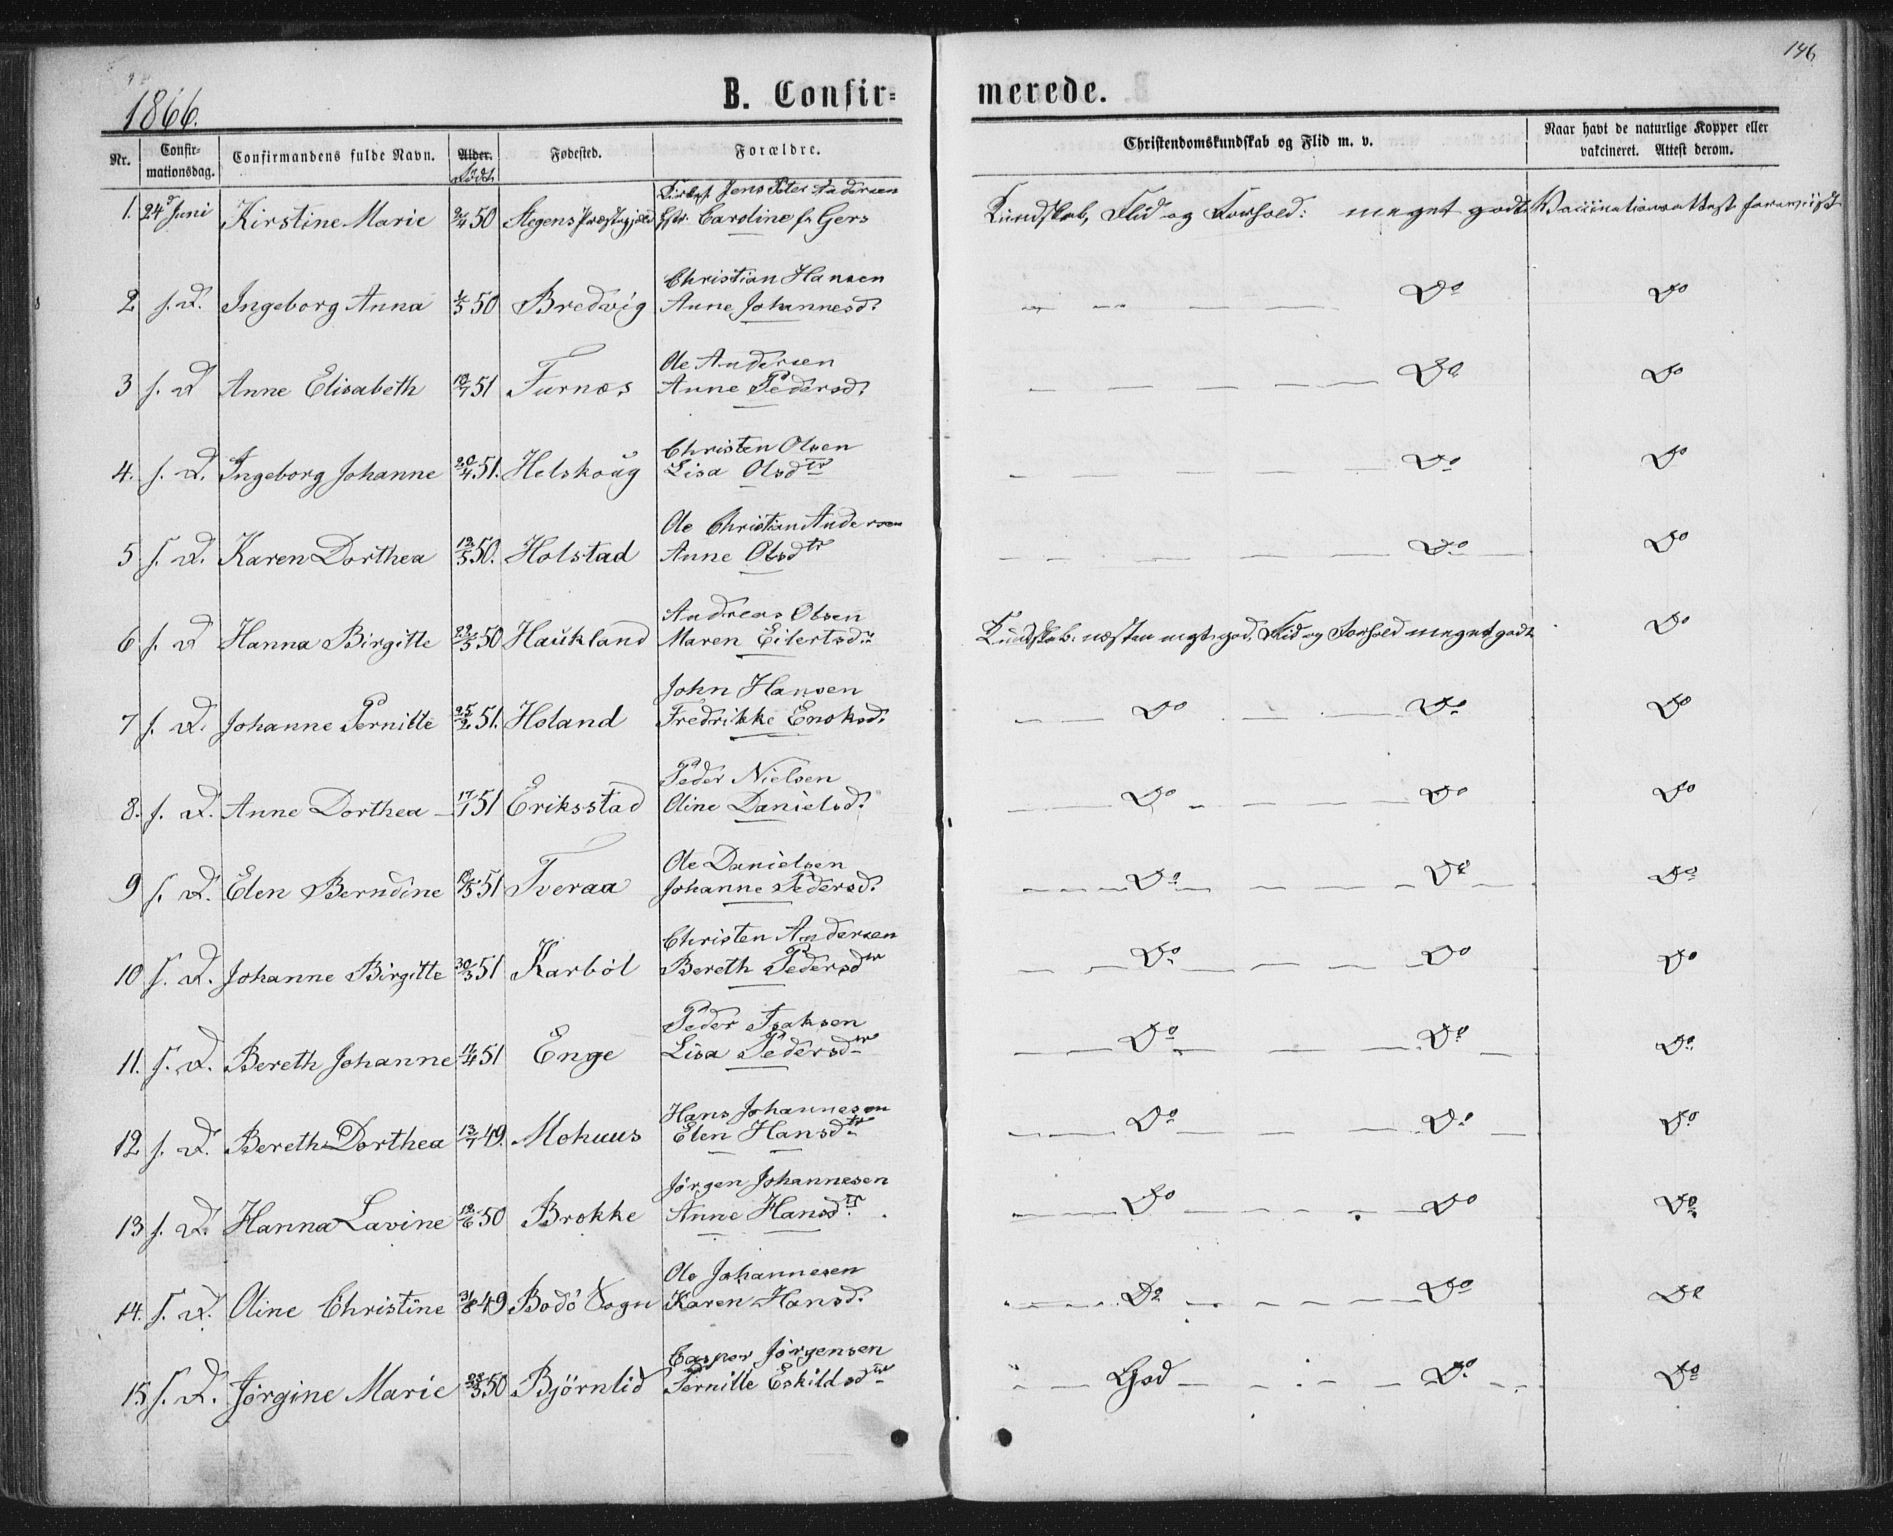 146
1866.
B. Confirmerede.
Nr. Confirmationsdag. Confirmandens fulde Navn. Alder. Født Fødested. Forældre. Christendomskundskab og Flid m. v. Naar havt de naturlige Kopper eller vakcineret. Attest derom.
Jens Peter Andersen
1. 24 Juni Kirstine Marie 50 Stegens Præstegjeld Caroline f. Gers Kundskab, Flid og Forhold: meget godt Vaccinationsattest foreviist
Christian Hansen
2 s. D. Ingeborg Anna 50 Bredvig Anne Johannesd. Do Do
Ole Andersen
3 s. D Anne Elisabeth 51 Furnæs Anne Pedersd. Do Do
Christen Olsen
4. s. D. Ingeborg Johanne 20/4 51. Helskoug Lisa Olsdtr Do Do
Ole Christian Andersen
5 s. D. Karen Dorthea 50. Holstad Anne Olsdtr Do Do
Andreas Olsen
6 s. D Hanna Birgitte 50 Haukland Maren Eilertsd. Kundskab: næsten megt god, Flid og Forhold meget godt Do
John Hansen
7 s. D. Johanne Pernille 25/2 51. Holand Fredrikke Enoksd. Do Do Do
Peder Nielsen
8. s. D. Anne Dorthea 17/1 51 Eriksstad Oline Danielsd. Do Do Do
Ole Danielsen
9 s. D. Elen Berndine 51 Tveraa Johanne Pedersd. Do Do Do
Christen Andersen
10 s. D. Johanne Birgitte 30/3 51 Karböl Bereth Pedersdtr Do Do Do
Peder Isaksen
11. s. D. Bereth Johanne 51 Enge Lisa Pedersdtr Do Do Do
Hans Johannesen
12 s. D. Bereth Dorthea 13/7 49. Mohuus Elen Hansdtr Do Do Do
Jørgen Johannesen
13 s. D. Hanna Lavine 50 Brokke Anne Hansdtr Do Do Do
Ole Johannesen
14. s. D. Oline Christine 31/8 49 Bodö Sogn Karen Hansd. Do Do Do
Casper Jörgensen
15 s. D. Jörgine Marie 50 Björnlid Pernille Eskildsdtr God Do Do